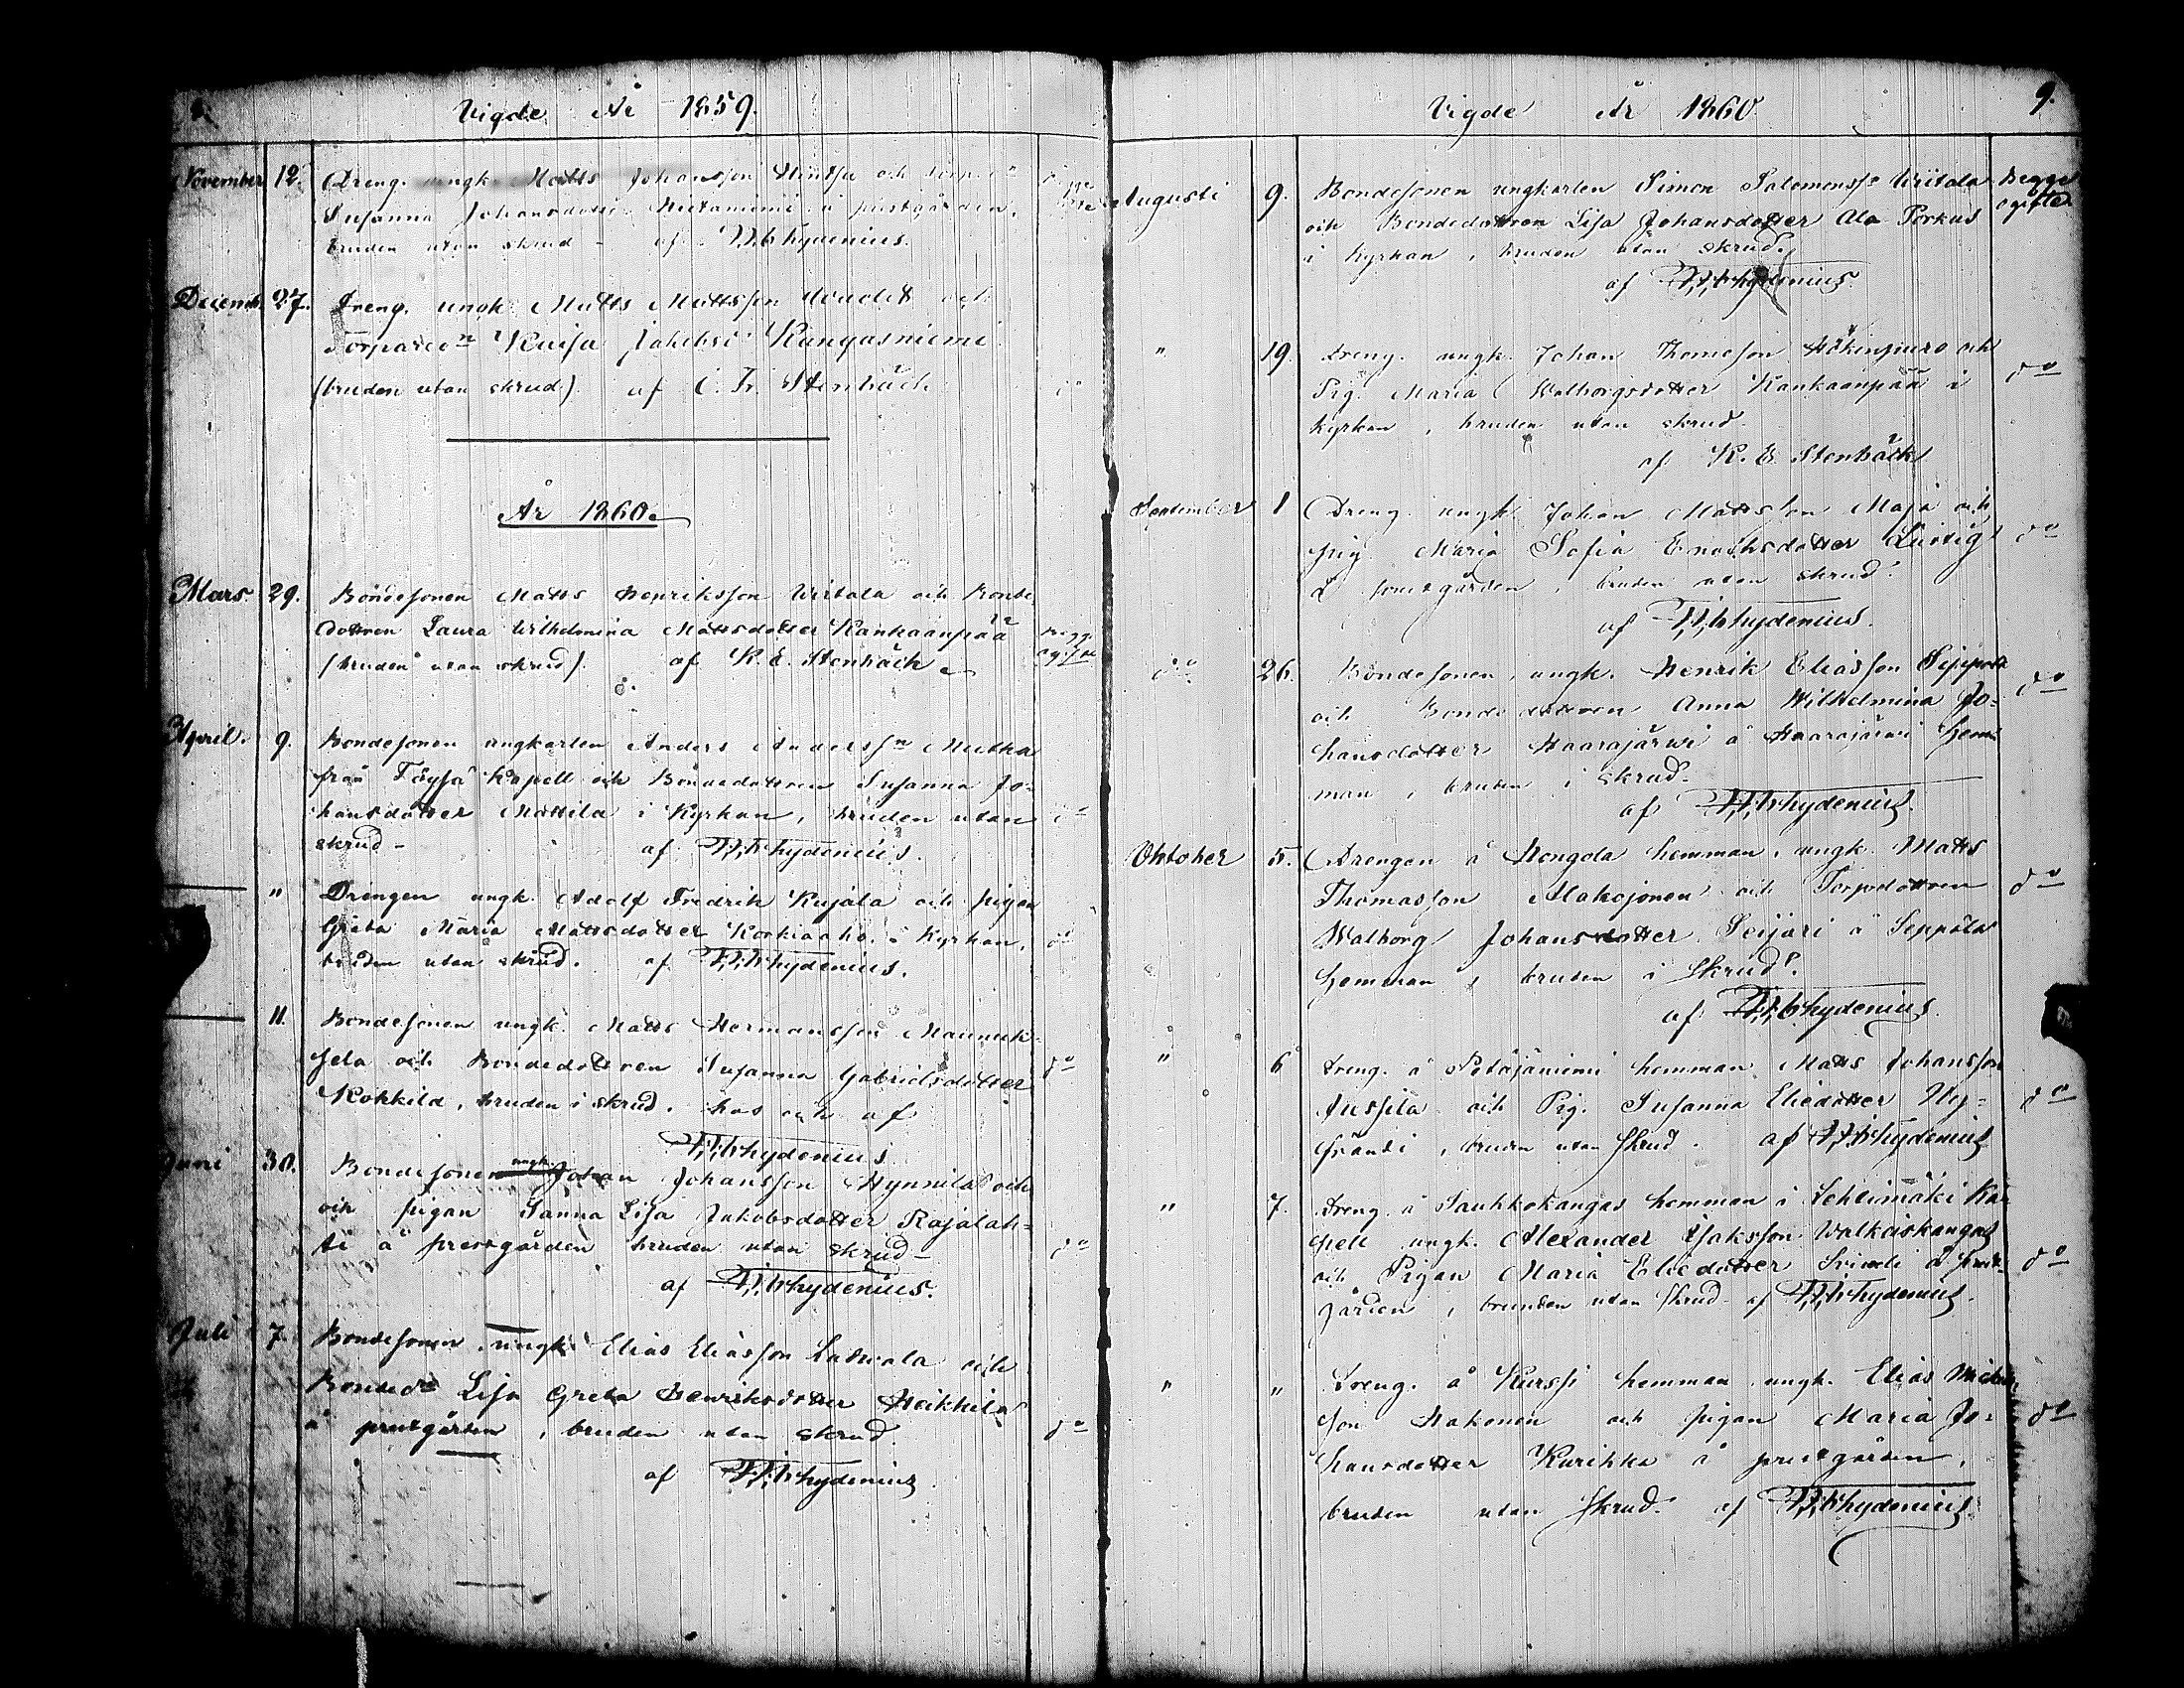 Vigde År 1859.
November 12. Dreng. ungk Matts Johansson Hintsa och
Susanna Johansdotter å prestgården. Begge
bruden utan skrud - af W. W. Chydenius.
Decemb. 27. Dreng. ungk. Matts Mattsson och
Kaisa Jakobsd Kangasniemi
(bruden utan skrud). af C. Fr. Stenbäck do
År 1860.
Mars 29. Bondesonen Matts Henriksson Wirtala och Bonde
dottren Laura Wilhelmina Mattsdotter Kankaanpää Begge
(bruden utan skrud). af K. E. Stenbäck ogifte
April. 9. Bondesonen ungkarlen Anders Anderssn
från Töysä Kapell och Bondedottren Susanna Jo-
hansdotter Mattila i Kyrkan, bruden utan do
skrud - af W. W. Chydenius.
" Drengen ungk. Adolf Fredrik Kujala och pigan
Greta Maria Mattsdotter Korkiaaho i Kyrkan, do
bruden utan skrud. af W. W. Chydenius.
11. Bondesonen ungk. Matts Hermansson Maunuk-
sela och Bondedottren Susanna Gabrielsdotter do
Kokkila, bruden i skrud. hos och af
W. W. Chydenius
Juni 30. Bondesonen ungk. Johan Johansson Hynnilä och
och pigan Sanna Lisa Jakobsdotter Rajalah-
ti å prestgården bruden utan skrud - do
af W. W. Chydenius.
Juli 7. Bondesonen ungk. Elias Eliasson och
Bondedr Lisa Greta Henriksdotter Heikkilä
å prestgården, bruden utan skrud. do
af W. W. Chydenius.
Vigde År 1860. 9.
Augusti 9. Bondesonen ungkarlen Simon Salomonssn Wiitala Begge
och Bondedottren Lisa Johansdotter Ala Porkus ogifte
i kyrkan, bruden utan skrud.
af W. W. Chydenius.
" 19. Dreng. ungk. Johan Thomasson och
Pig. Maria Walborgsdotter Kankaanpää i do
kyrkan, bruden utan skrud.
af K. E. Stenbäck
September 1 Dreng. ungk Johan Mattsson Maja och
pig. Maria Sofia Enochsdotter do
å prestgården, bruden utan skrud.
af W. W. Chydenius.
do 26. Bondesonen, ungk. Henrik Eliasson do
och Bondedottren Anna Wilhelmina Jo-
hansdotter Haarajärwi å Haarajärwi hem-
man, bruden i skrud.
af W. W. Chydenius.
Oktober 5. Drengen å Hongola hemman, ungk. Matts
Thomasson och Torpdottren do
Walborg Johansdotter Seijari å Seppälä
hemman, bruden i skrud.
af W. W. Chydenius.
" 6 Dreng. å Petäjäniemi hemman, Matts Johansson
och Pig. Susanna Eliedotter Ny- do
gränd i, bruden utan skrud. af W. W. Chydenius
" 7. Dreng. å Sauhkokangas hemman i Lehtimäki Ka-
pell ungk. Alexander Isaksson Walkeiskangas
och Pigan Maria Eliedotter å prest- do
gården, bruden utan skrud. af W. W. Chydenius.
" " Dreng. å hemman ungk. Elias
son Hakonen och pigan Maria Jo- do
hansdotter Kurikka å prestgården,
bruden utan skrud. af W. W. Chydenius.